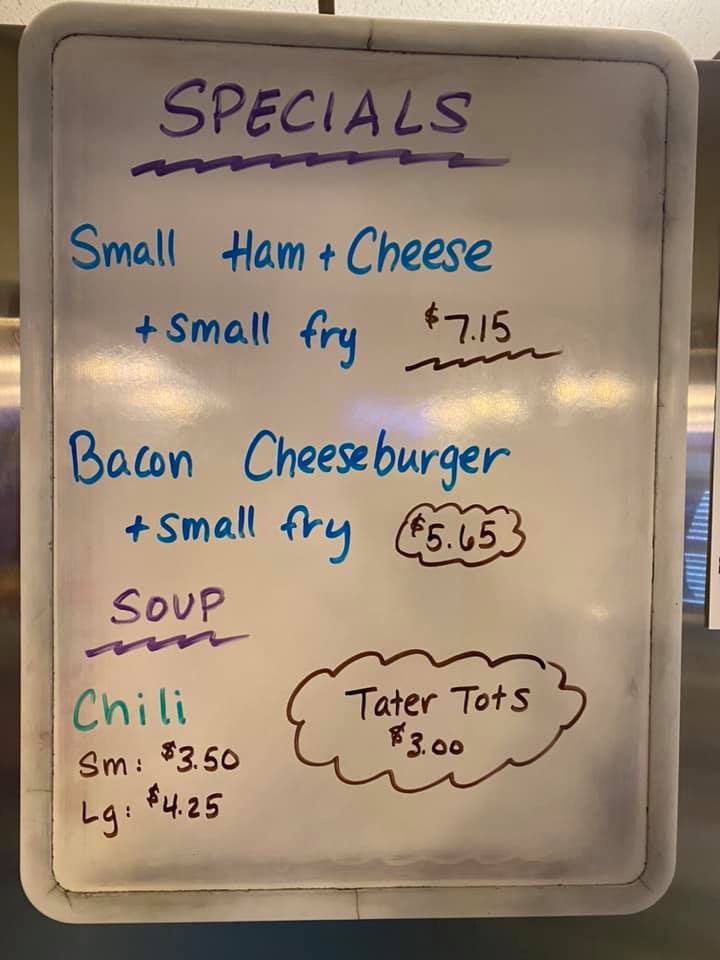 SPECIALS
Small Ham + Cheese
+ small fry $7.15
Bacon Cheeseburger
+ small fry $5.65
SOUP
Chili
Sm: $3.50
Lg: $4.25
Tater Tots
$3.00